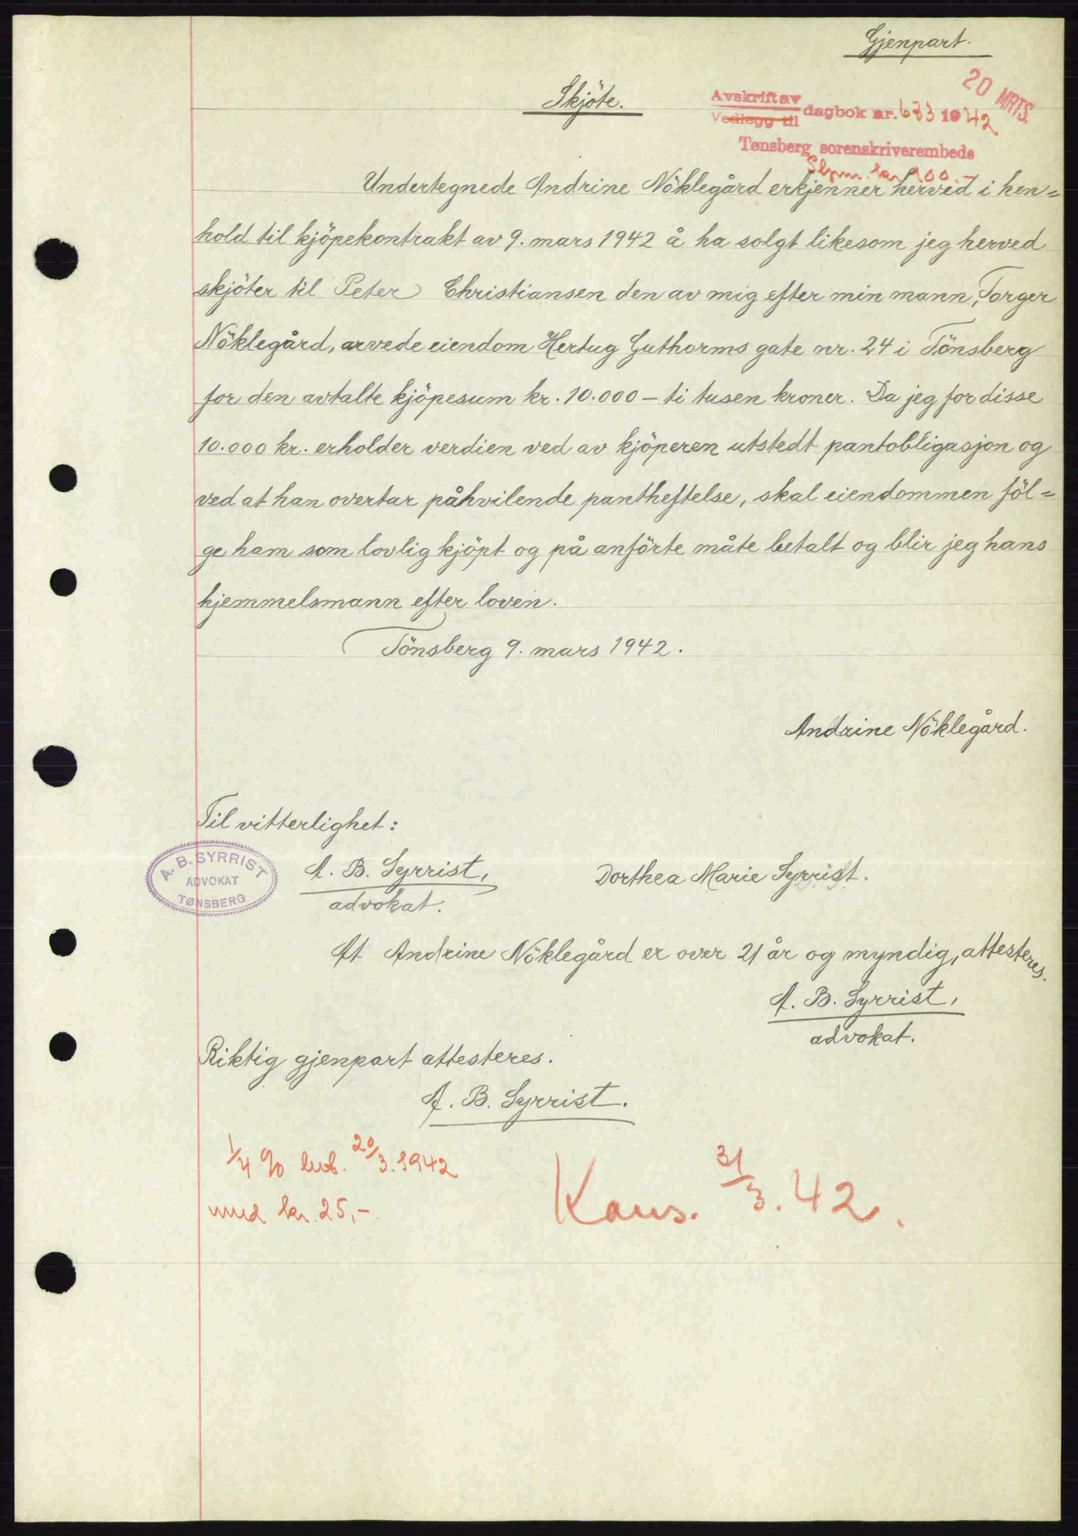 Gjenpart.
Skjöte.
20 MRTS.
Avskrift av
Vedlegg til
dagbok nr. 683 1942
Tønsberg sorenskriverembede
Stpm. kr. 100.-
Undertegnede Andrine Nöklegård erkjenner herved i hen=
hold til kjöpekontrakt av 9. mars 1942 å ha solgt likesom jeg herved
skjöter til Peter Christiansen den av mig efter min mann, Torger
Nöklegård, arvede eiendom Hertug Guthorms gate nr. 24 i Tönsberg
for den avtalte kjöpesum kr. 10.000 – ti tusen kroner. Da jeg for disse
10.000 kr. erholder verdien ved av kjöperen utstedt pantobligasjon og
ved at han overtar påhvilende pantheftelse, skal eiendommen föl=
ge ham som lovlig kjöpt og på anförte måte betalt og blir jeg hans
hjemmelsmann efter loven.
Tönsberg 9. mars 1942.
Andrine Nöklegård.
Til vitterlighet:
A. B. SYRRIST
ADVOKAT
TØNSBERG
A. B. Syrrist,
advokat.
Dorthea Marie Syrrist.
At Andrine Nöklegård er over 21 år og myndig, attesteres.
A. B. Syrrist,
advokat.
Riktig gjenpart attesteres.
A. B. Syrrist.
1/4 % 20/3.1942
med kr. 25,-.
Kans. 31/3.42.